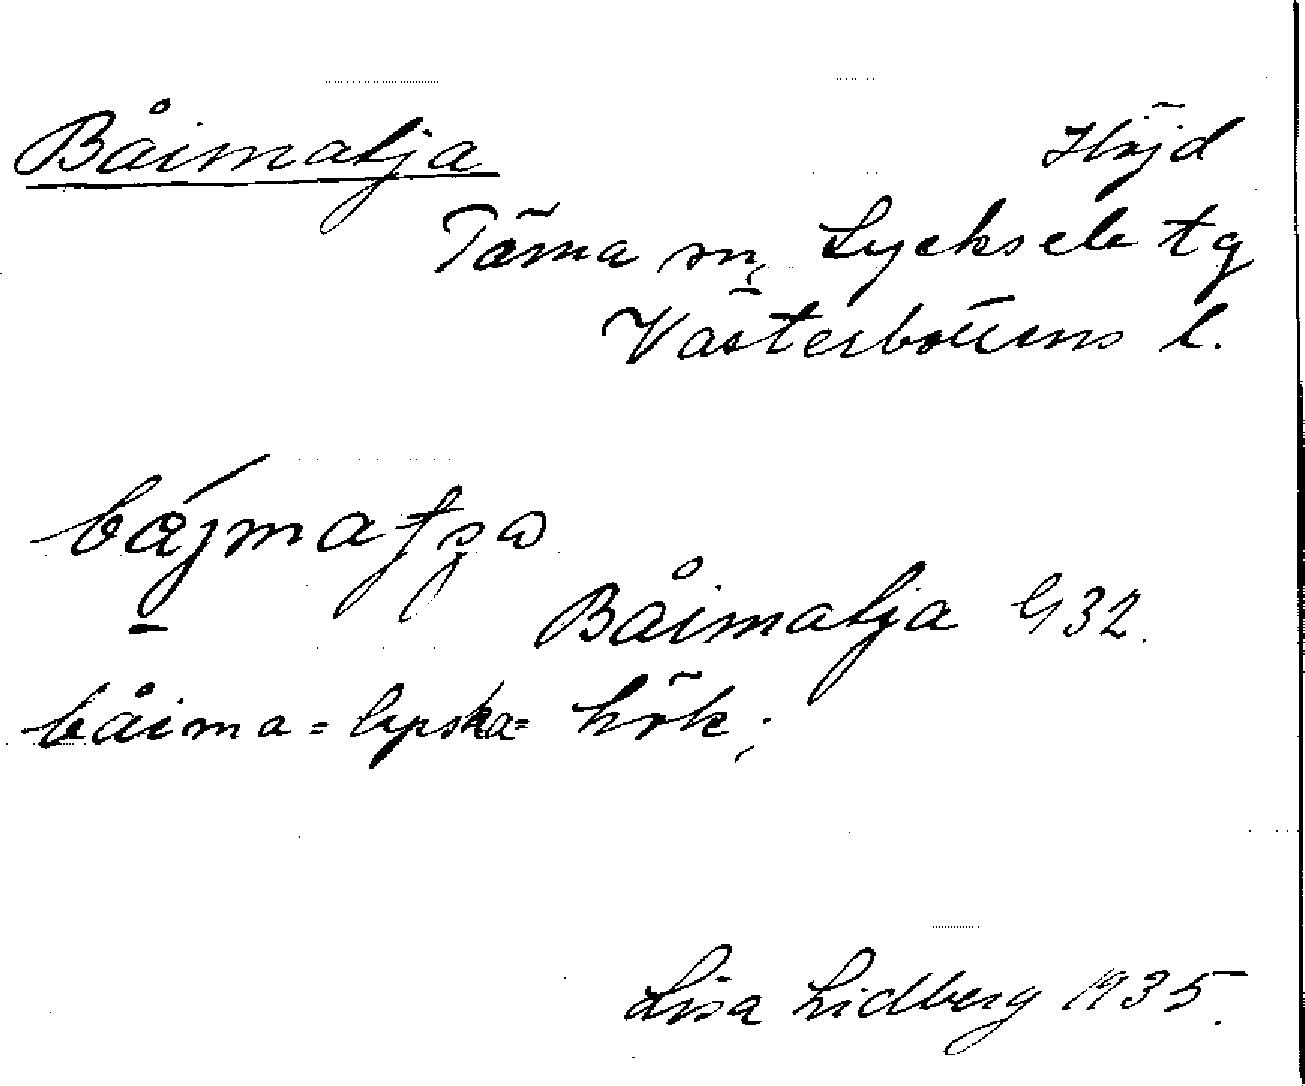 Båimatja Höjd
Täma sn, Lycksele tg
Västerbottens l.
Båimatja G 32.
båima = lapska = hök;
Lisa Lidberg 1935.